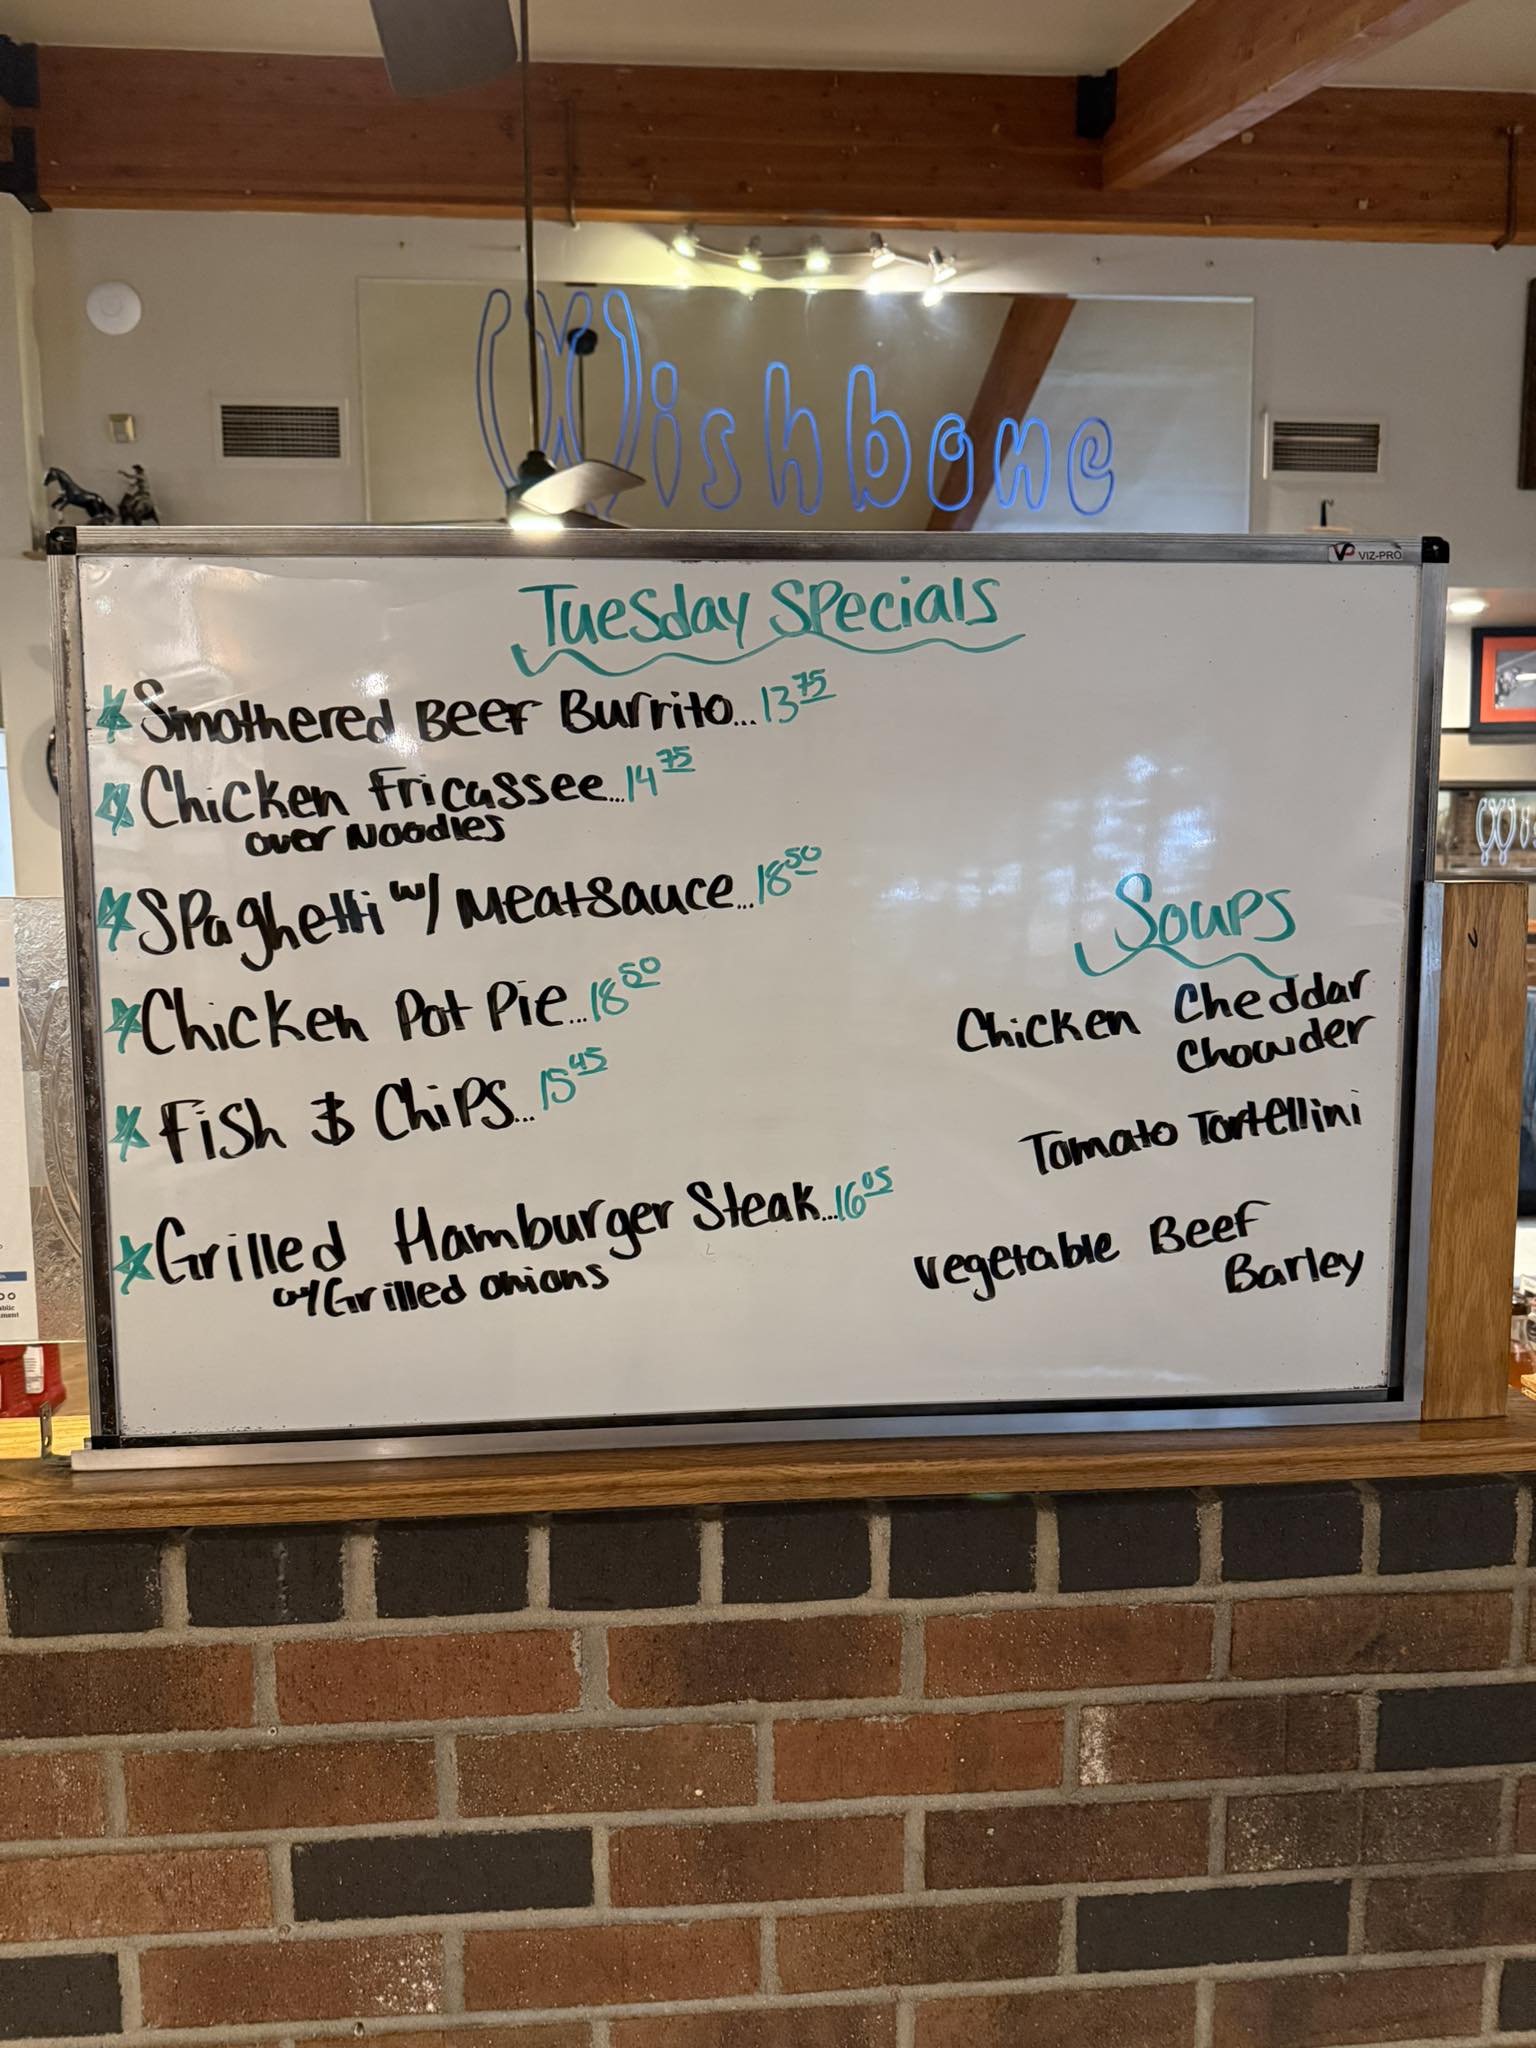 Wishbone
VIZ-PRO
Tuesday Specials
Smothered Beef Burrito...13 75
Chicken Fricassee...14 75
over Noodles
Spaghetti w/ Meatsauce...18 50
Chicken Pot Pie...18 50
Fish & Chips...15 45
Grilled Hamburger Steak...16 05
w/Grilled onions
Soups
Chicken Cheddar
Chowder
Tomato Tortellini
Vegetable Beef
Barley